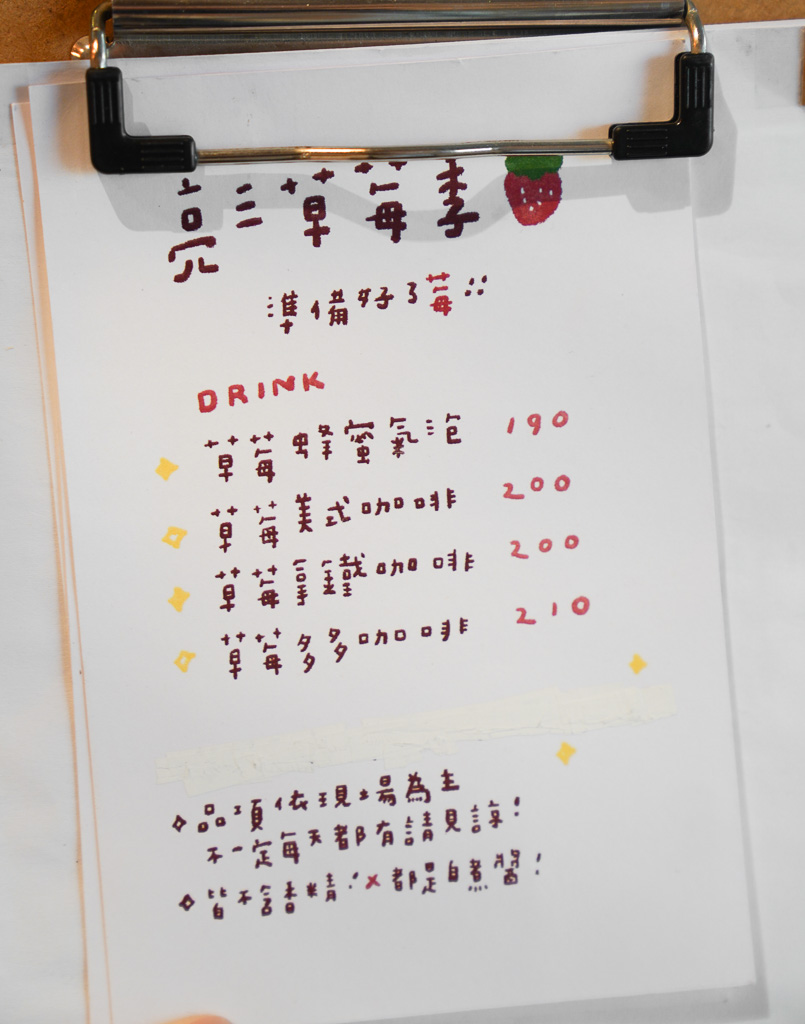 亮三草莓季
準備好了莓!!
DRINK
草莓蜂蜜氣泡 190
草莓美式咖啡 200
草莓拿鐵咖啡 200
草莓多多咖啡 210
品項依現場為主
不一定每天都有請見諒!
皆不含香精! x 都是自煮醬!